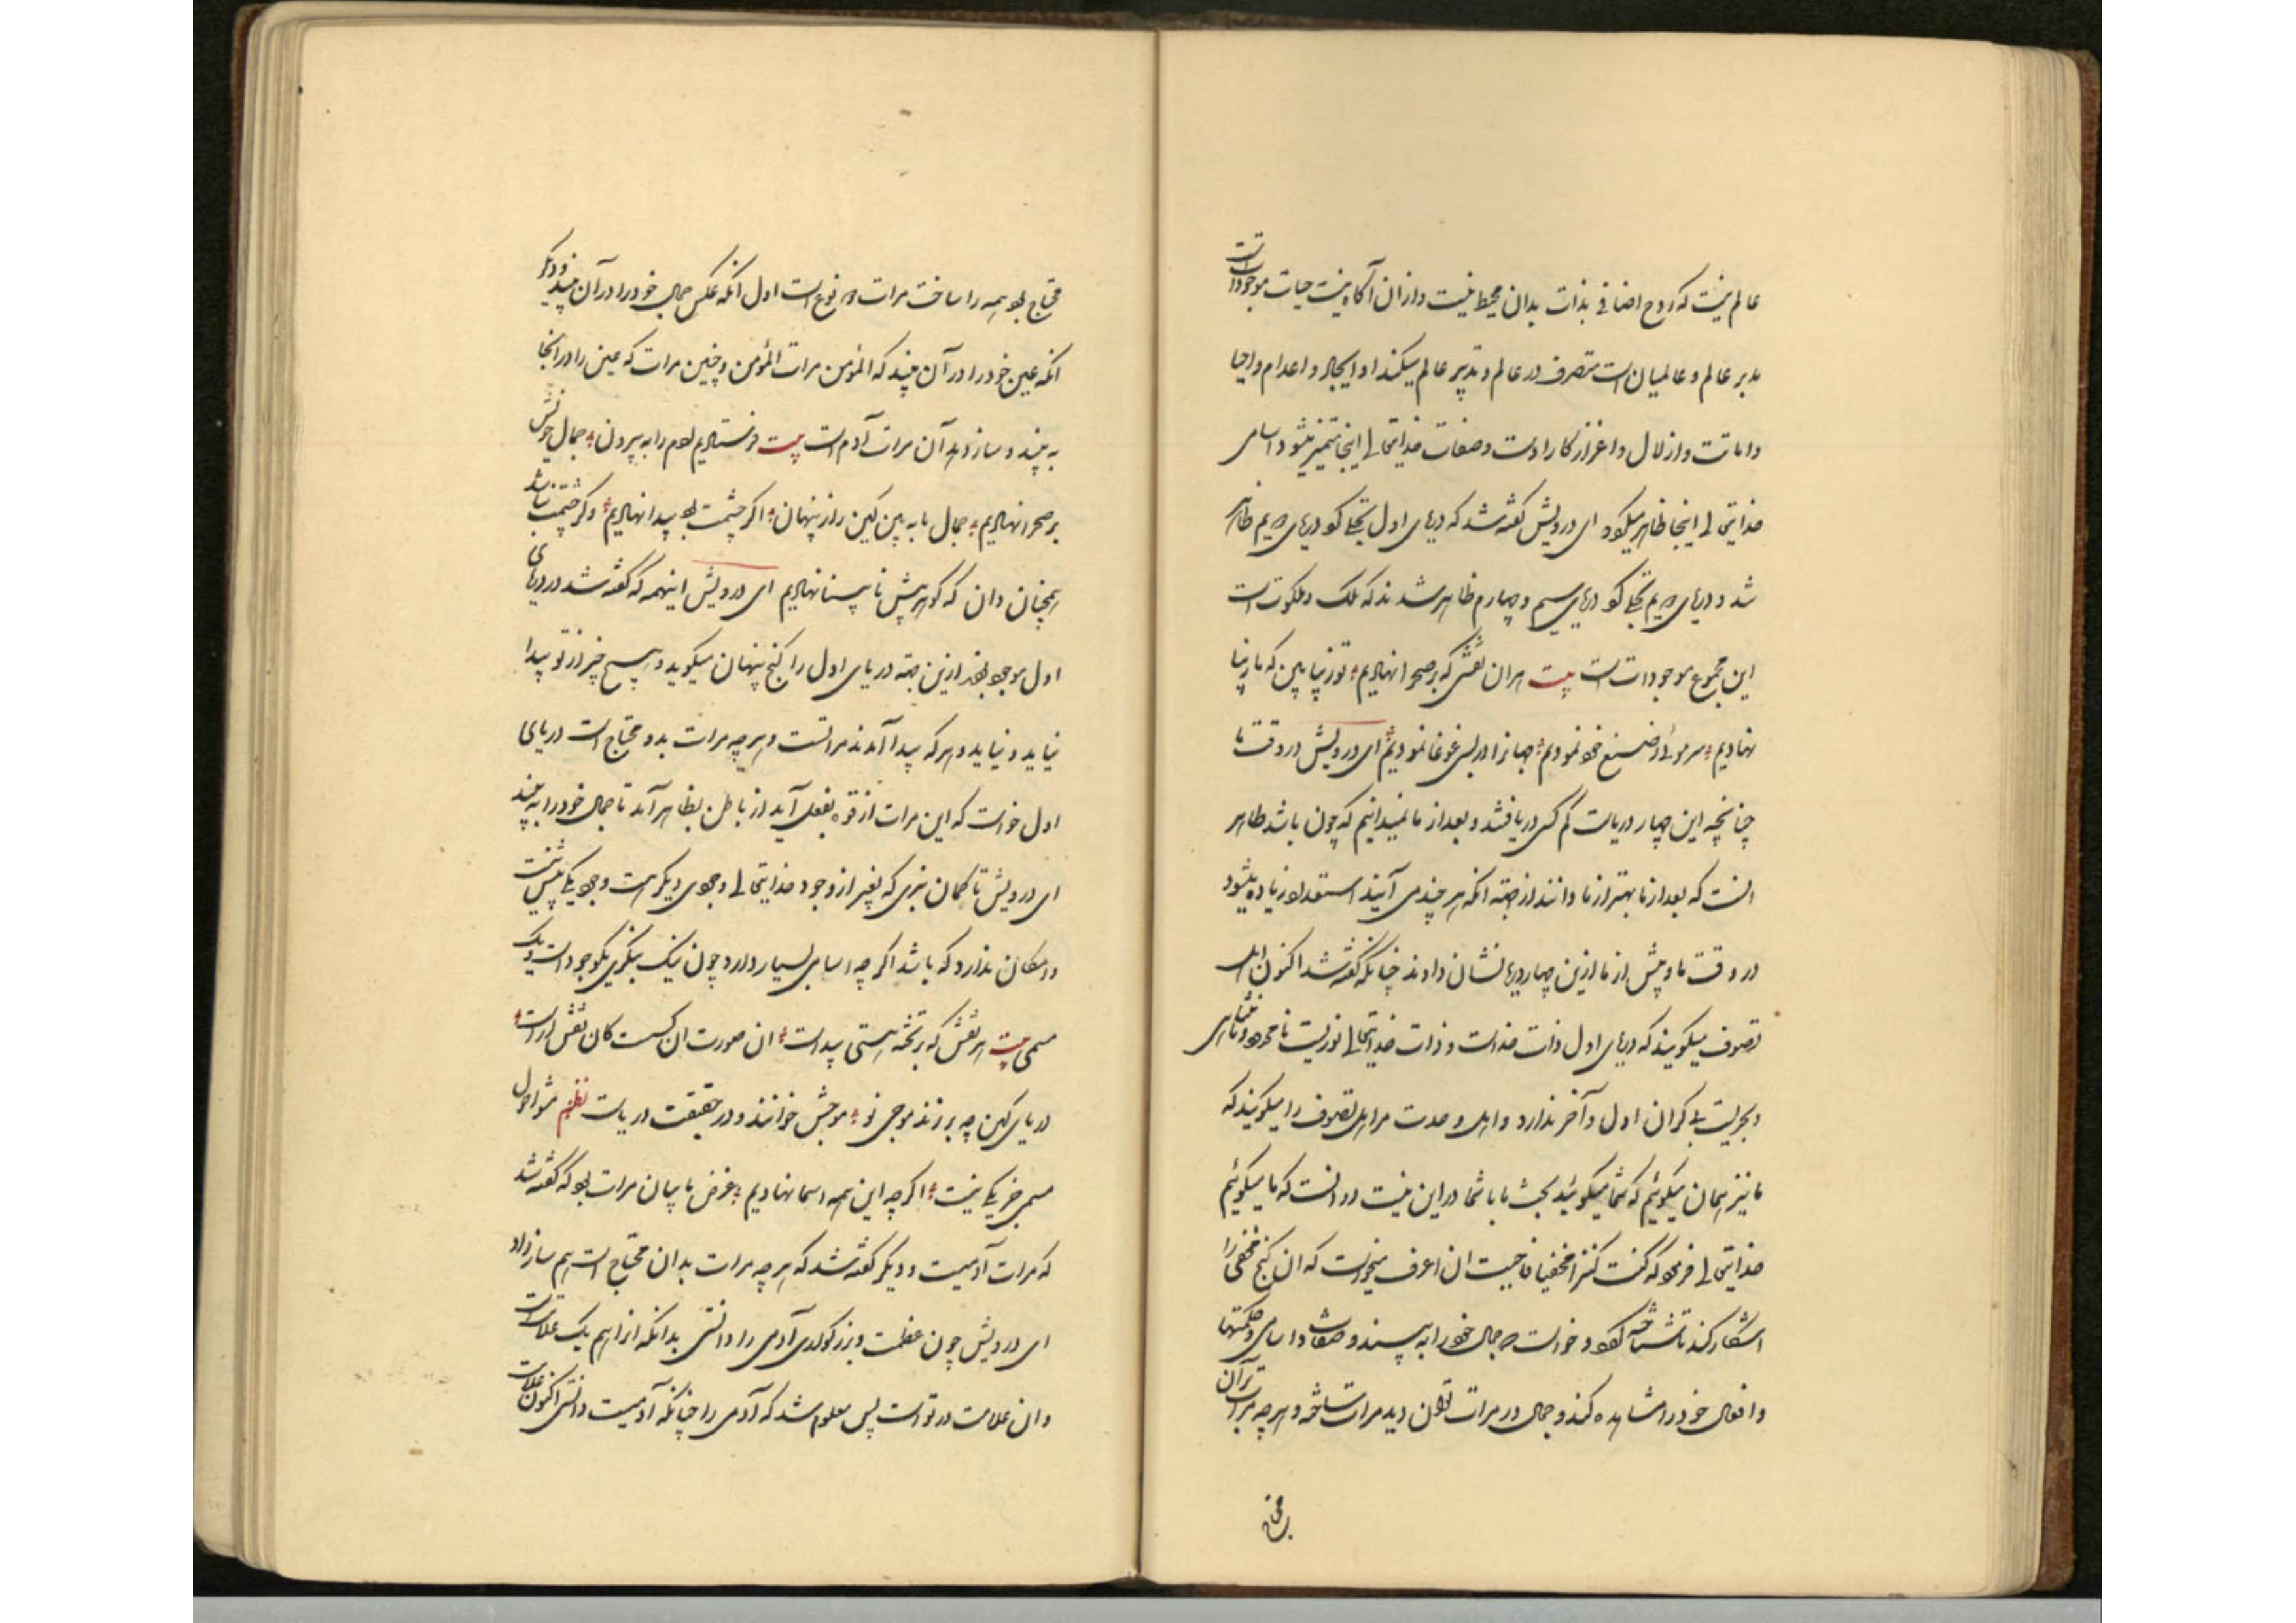 عالم نیست که روح اضافی بذات بدان محیط نیست و ازان آگاه نیست حیات موجودات است
مدبر عالم و عالمیان است متصرف در عالم و تدبیر عالم میکند او و ایجاد و اعدام و احیا
و اماتت و ازلال و اعزاز کار اوست و صفات خدایتعالی اینجا متمیز میشود و اسامی
خدایتعالی اینجا ظاهر میگردد ای درویش گفته شد که دریای اول تجلی کرد دریای دویم ظاهر
شد و دریای دویم تجلی کرد دریای سیم و چهارم ظاهر شدند که ملک و ملکوت است
این مجموع موجودات است بیت هران نقشی که بر صحرا نهادیم تو زیبا بین که ما زیبا
نهادیم سر موئی ز صنع خود نمودیم جهانرا در بسی غوغا نمودیم ای درویش در وقت ما
چنانچه این چهار دریاست کم کسی دریافتند و بعد از ما نمیدانیم که چون باشد ظاهر
انست که بعد از ما بهتر از ما دانند از جهة انکه هر چند می آیند استعداد زیاده میشود
در وقت ما و پیش از ما ازین چهار دریا نشان دادند چنانکه گفته شد اکنون اهل
تصوف میگویند که دریای اول ذات خداست و ذات خدایتعالی نوریست نامحدود و نامتناهی
و بحریست بی کران اول و آخر ندارد و اهل وحدت مر اهل تصوف را میگویند که
ما نیز همان میگوئیم که شما میگوئید بحث ما با شما در این نیست در انست که ما میگوئیم
خدایتعالی فرمود که کنت کنزا مخفیا فاحببت ان اعرف میخواست که ان گنج مخفی را
اشکار کند تا شناخته گردد و خواست که جمال خود را به بیند و صفات و اسامی و حکمتها
و افعال خود را مشاهده کند و جمال در مرات توان دید مرات ساخته و هرچه مرات بر آن
محتاج
محتاج بود همه را ساخت مرات دو نوع است اول انکه عکس جمال خود را در آن بیند و دیگر
انکه عین خود را در آن بیند که المؤمن مرات المؤمن و چنین مرات که عین را در انجا
به بیند و سازد آن مرات آدم است بیت فرستادیم آدم را به بیرون جمال خویش
بر صحرا نهادیم جمال ما به بین کین راز پنهان اگر چشمت بود پیدا نهادیم وگر چشمت نباشد
همچنان دان که گوهر پیش نابینا نهادیم ای درویش اینهمه که گفته شد در دریای
اول موجود بود ازین جهة دریای اول را گنج پنهان میگوید و هیچ چیز از تو پیدا
نیاید و نیاید و هر که پیدا آمدند مراتست و هرچه مرات بدو محتاج است دریای
اول خواست که این مرات از قوه بفعل آید از باطن بظاهر آید تا جمال خود را به بیند
ای درویش تا گمان نبری که بغیر از وجود خدایتعالی وجودی دیگر است وجود یکی بیش نیست
و امکان ندارد که باشد اگرچه اسامی بسیار دارد چون نیک بنگری یک وجود است و یک
مسمی بیت هر نقش که بر تخته هستی پیداست ان صورت ان کست کان نقش اراست
دریای کهن چه بر زند موجی نو موجش خوانند و در حقیقت دریاست نظم مشو احول
مسمی جز یکی نیست اگرچه این همه اسما نهادیم غرض ما بیان مرات بود که گفته شد
که مرات آدمیست و دیگر گفته شد که هرچه مرات بدان محتاج است هم ساز داد
ای درویش چون عظمت و بزرگواری آدمی را دانستی بدانکه انرا هم یک علامت است
وان علامت در تو است پس معلوم شد که آدمی را چنانکه آدمیست دانستی اکنون علامت